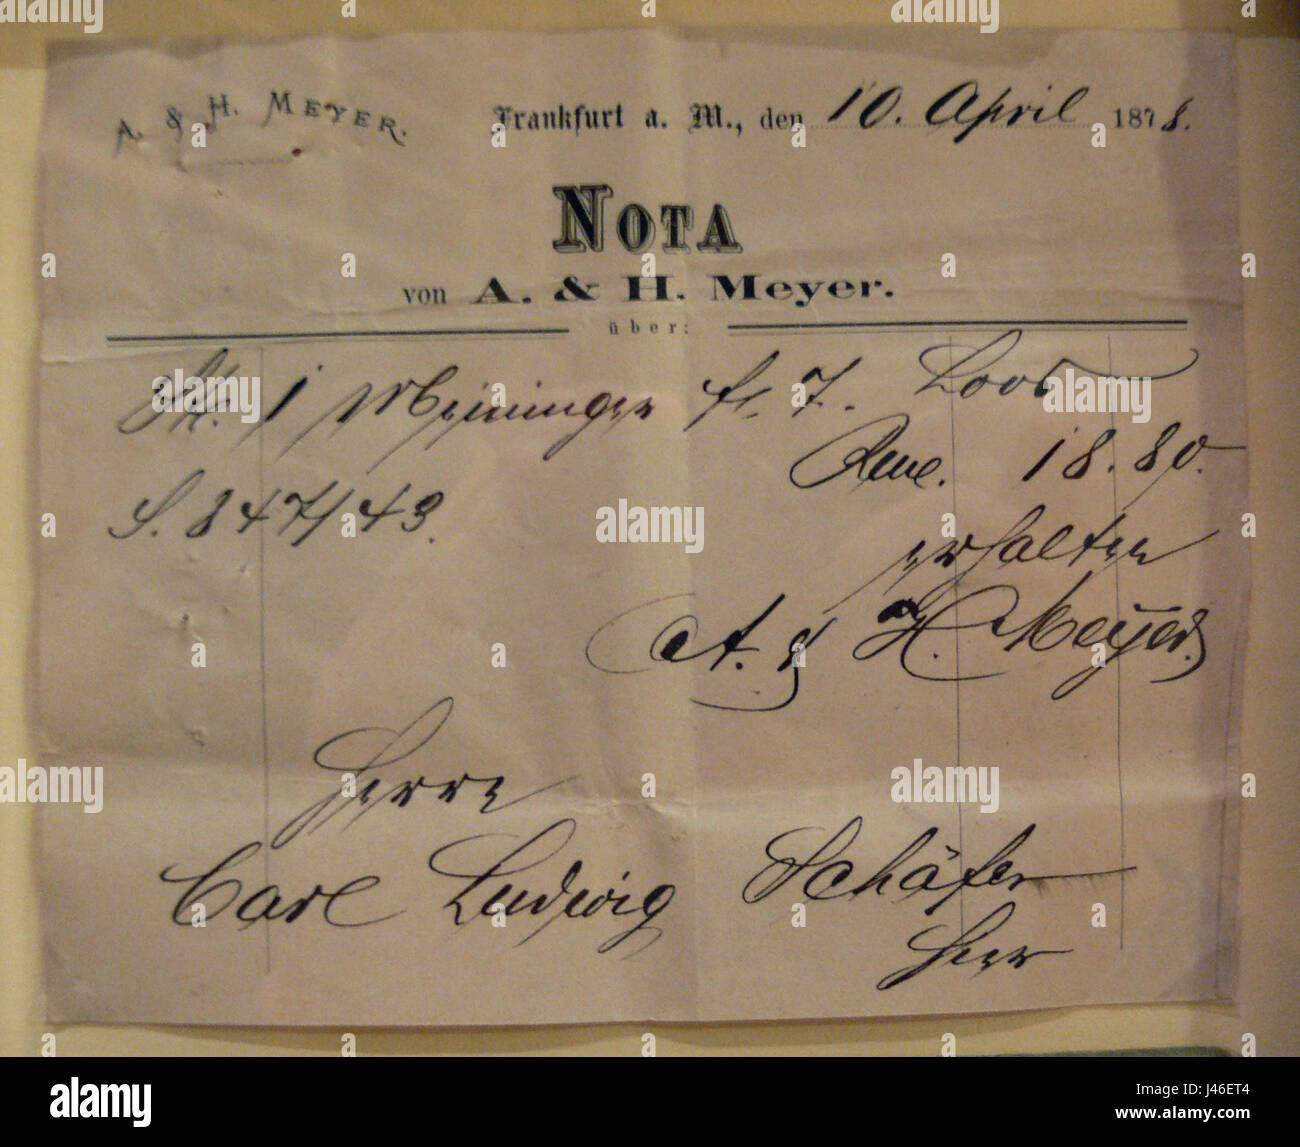 A. & H. MEYER.
Frankfurt a. M., den 10. April 1878.
NOTA
von A. & H. Meyer.
über:
St. 1 Meininger fl. 7. Loos
Rm. 18.80.
S. 8474/43.
erhalten
A. & H. Meyer
Herrn
Carl Ludwig Schäfer
Hier
alamy
Image ID: J46ET4
www.alamy.com